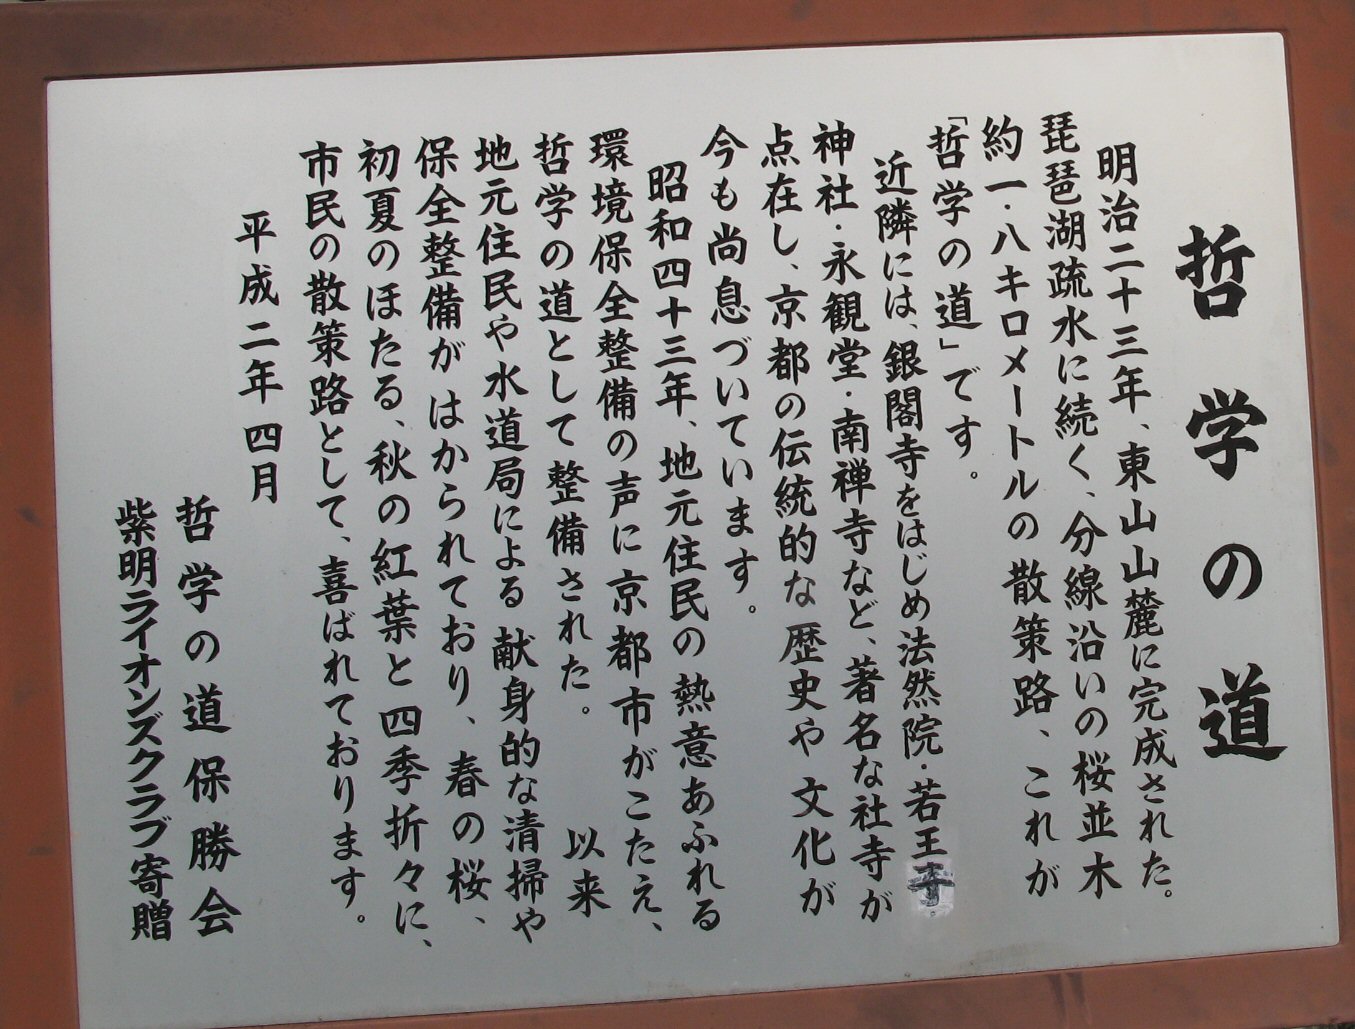 哲学の道
明治二十三年、東山山麓に完成された。
琵琶湖疏水に続く、分線沿いの桜並木
約一・八キロメートルの散策路、これが
「哲学の道」です。
近隣には、銀閣寺をはじめ法然院・若王
神社・永観堂・南禅寺など、著名な社寺が
点在し、京都の伝統的な歴史や文化が
今も尚息づいています。
昭和四十三年、地元住民の熱意あふれる
環境保全整備の声に京都市がこたえ、
哲学の道として整備された。 以来
地元住民や水道局による献身的な清掃や
保全整備がはかられており、春の桜、
初夏のほたる、秋の紅葉と四季折々に、
市民の散策路として、喜ばれております。
平成二年四月
哲学の道保勝会
紫明ライオンズクラブ寄贈